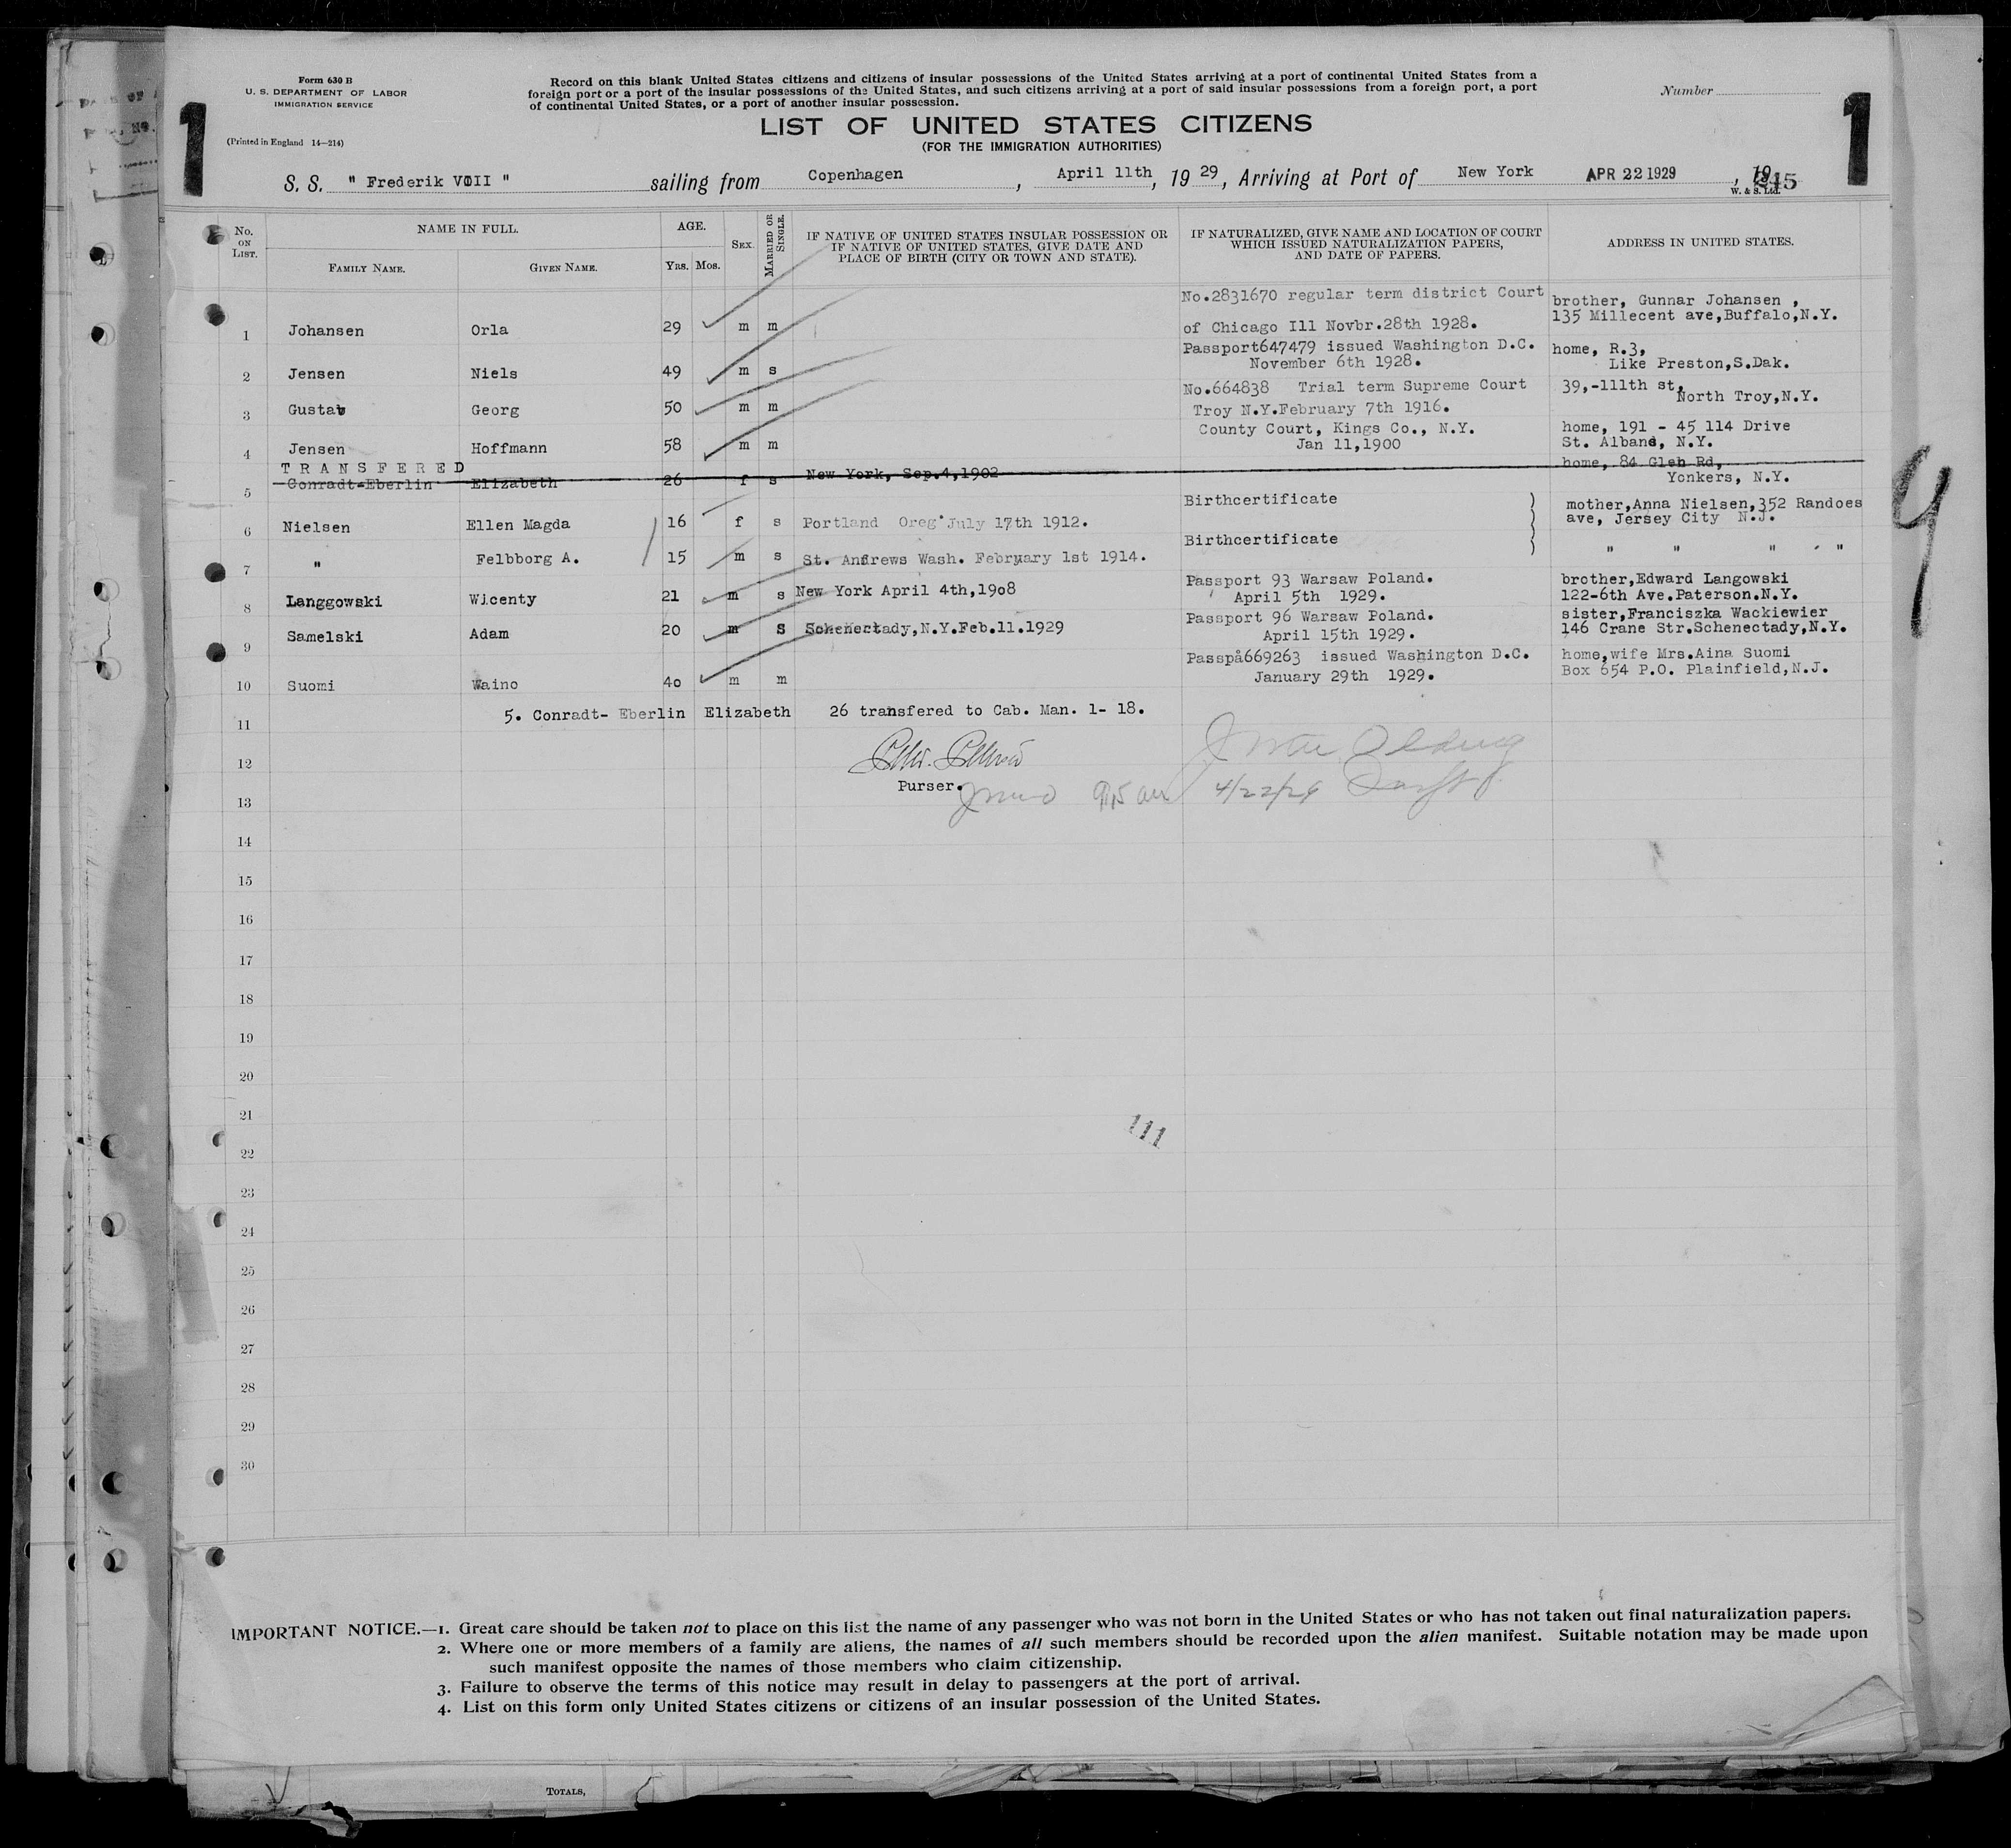 Form 630 B
U. S. DEPARTMENT OF LABOR
IMMIGRATION SERVICE
(Printed in England 14—214)
1
Record on this blank United States citizens and citizens of insular possessions of the United States arriving at a port of continental United States from a
foreign port or a port of the insular possessions of the United States, and such citizens arriving at a port of said insular possessions from a foreign port, a port
of continental United States, or a port of another insular possession.
Number
1
LIST OF UNITED STATES CITIZENS
(FOR THE IMMIGRATION AUTHORITIES)
S. S. " Frederik VIII " sailing from Copenhagen, April 11th, 19 29, Arriving at Port of New York APR 22 1929, 19
W. & S. Ltd.
No. ON LIST. NAME IN FULL. AGE. SEX. MARRIED OR SINGLE. IF NATIVE OF UNITED STATES INSULAR POSSESSION OR IF NATIVE OF UNITED STATES, GIVE DATE AND PLACE OF BIRTH (CITY OR TOWN AND STATE). IF NATURALIZED, GIVE NAME AND LOCATION OF COURT WHICH ISSUED NATURALIZATION PAPERS, AND DATE OF PAPERS. ADDRESS IN UNITED STATES.
FAMILY NAME. GIVEN NAME. YRS. MOS.
No.2831670 regular term district Court brother, Gunnar Johansen ,
1 Johansen Orla 29 m m of Chicago Ill Novbr.28th 1928. 135 Millecent ave,Buffalo,N.Y.
Passport647479 issued Washington D.C. home, R.3,
2 Jensen Niels 49 m s November 6th 1928. Like Preston,S.Dak.
No.664838 Trial term Supreme Court 39,-111th st,
3 Gustav Georg 50 m m Troy N.Y.February 7th 1916. North Troy,N.Y.
County Court, Kings Co., N.Y. home, 191 - 45 114 Drive
4 Jensen Hoffmann 58 m m Jan 11,1900 St. Albans, N.Y.
TRANSFERED home, 84 Glen Rd,
5 Conradt-Eberlin Elizabeth 26 f s New York, Sep.4,1902 Yonkers, N.Y.
Birthcertificate mother,Anna Nielsen,352 Randoes
6 Nielsen Ellen Magda 16 f s Portland Oreg.July 17th 1912. ave, Jersey City N.J.
Birthcertificate
7 " Felbborg A. 15 m s St. Andrews Wash. February 1st 1914. " " " "
Passport 93 Warsaw Poland. brother,Edward Langowski
8 Langgowski Wicenty 21 m s New York April 4th,19o8 April 5th 1929. 122-6th Ave.Paterson.N.Y.
Passport 96 Warsaw Poland. sister,Franciszka Wackiewier
9 Samelski Adam 20 m S Schenectady,N.Y.Feb.11.1929 April 15th 1929. 146 Crane Str.Schenectady,N.Y.
Passpå669263 issued Washington D.C. home,wife Mrs.Aina Suomi
10 Suomi Waino 4o m m January 29th 1929. Box 654 P.O. Plainfield,N.J.
11 5. Conradt- Eberlin Elizabeth 26 transfered to Cab. Man. 1- 18.
12
Purser.
13 4/22/29
14
15
16
17
18
19
20
21
111
22
23
24
25
26
27
28
29
30
IMPORTANT NOTICE.—1. Great care should be taken not to place on this list the name of any passenger who was not born in the United States or who has not taken out final naturalization papers.
2. Where one or more members of a family are aliens, the names of all such members should be recorded upon the alien manifest. Suitable notation may be made upon
such manifest opposite the names of those members who claim citizenship.
3. Failure to observe the terms of this notice may result in delay to passengers at the port of arrival.
4. List on this form only United States citizens or citizens of an insular possession of the United States.
TOTALS,